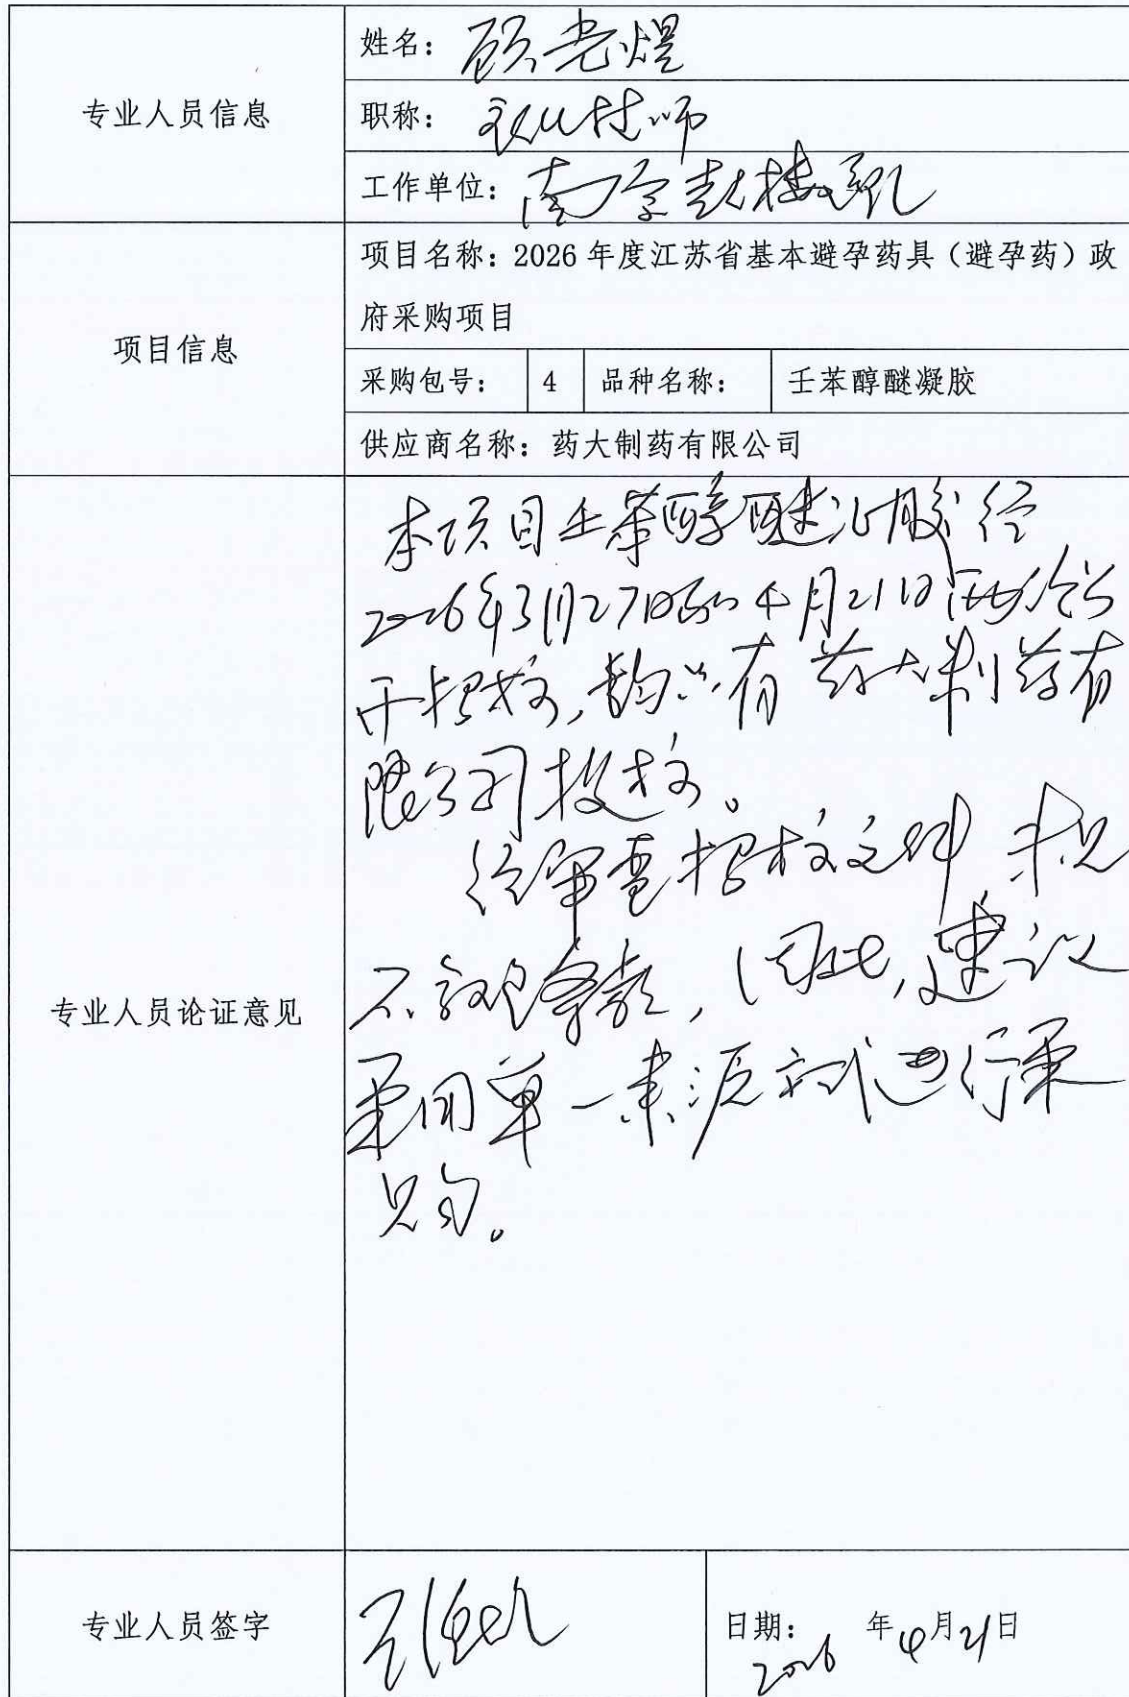 专业人员信息
姓名：顾光煜
职称：主任技师
工作单位：南京鼓楼医院
项目信息
项目名称：2026 年度江苏省基本避孕药具（避孕药）政
府采购项目
采购包号： 4 品种名称： 壬苯醇醚凝胶
供应商名称：药大制药有限公司
专业人员论证意见
本项目壬苯醇醚凝胶经
2026年3月27日和4月21日两次公
开招标，均只有药大制药有
限公司投标。
经审查招标文件未见
不合理条款，因此，建议
采用单一来源方式进行采
购。
专业人员签字
日期：2026 年4月21日